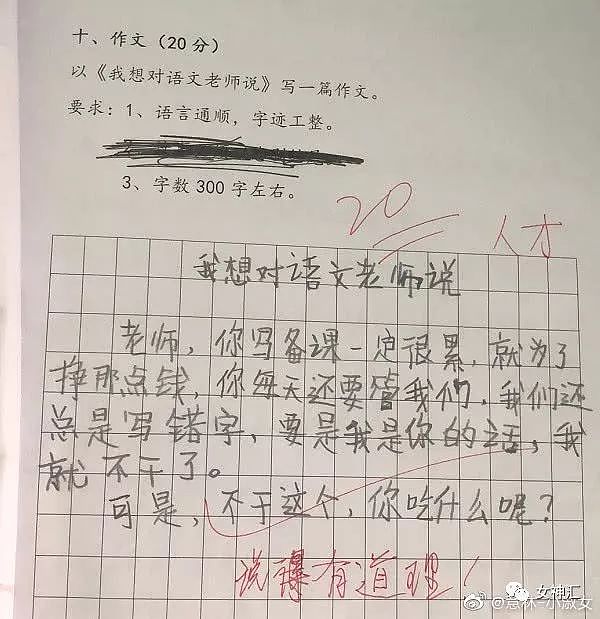 十、作文（20分）
以《我想对语文老师说》写一篇作文。
要求：1、语言通顺，字迹工整。
3、字数300字左右。
20
人才
我想对语文老师说
老师，你写备课一定很累，就为了
挣那点钱，你每天还要管我们，我们还
总是写错字，要是我是你的话，我
就不干了。
可是，不干这个，你吃什么呢？
说得有道理！
女神汇
@意林-小淑女